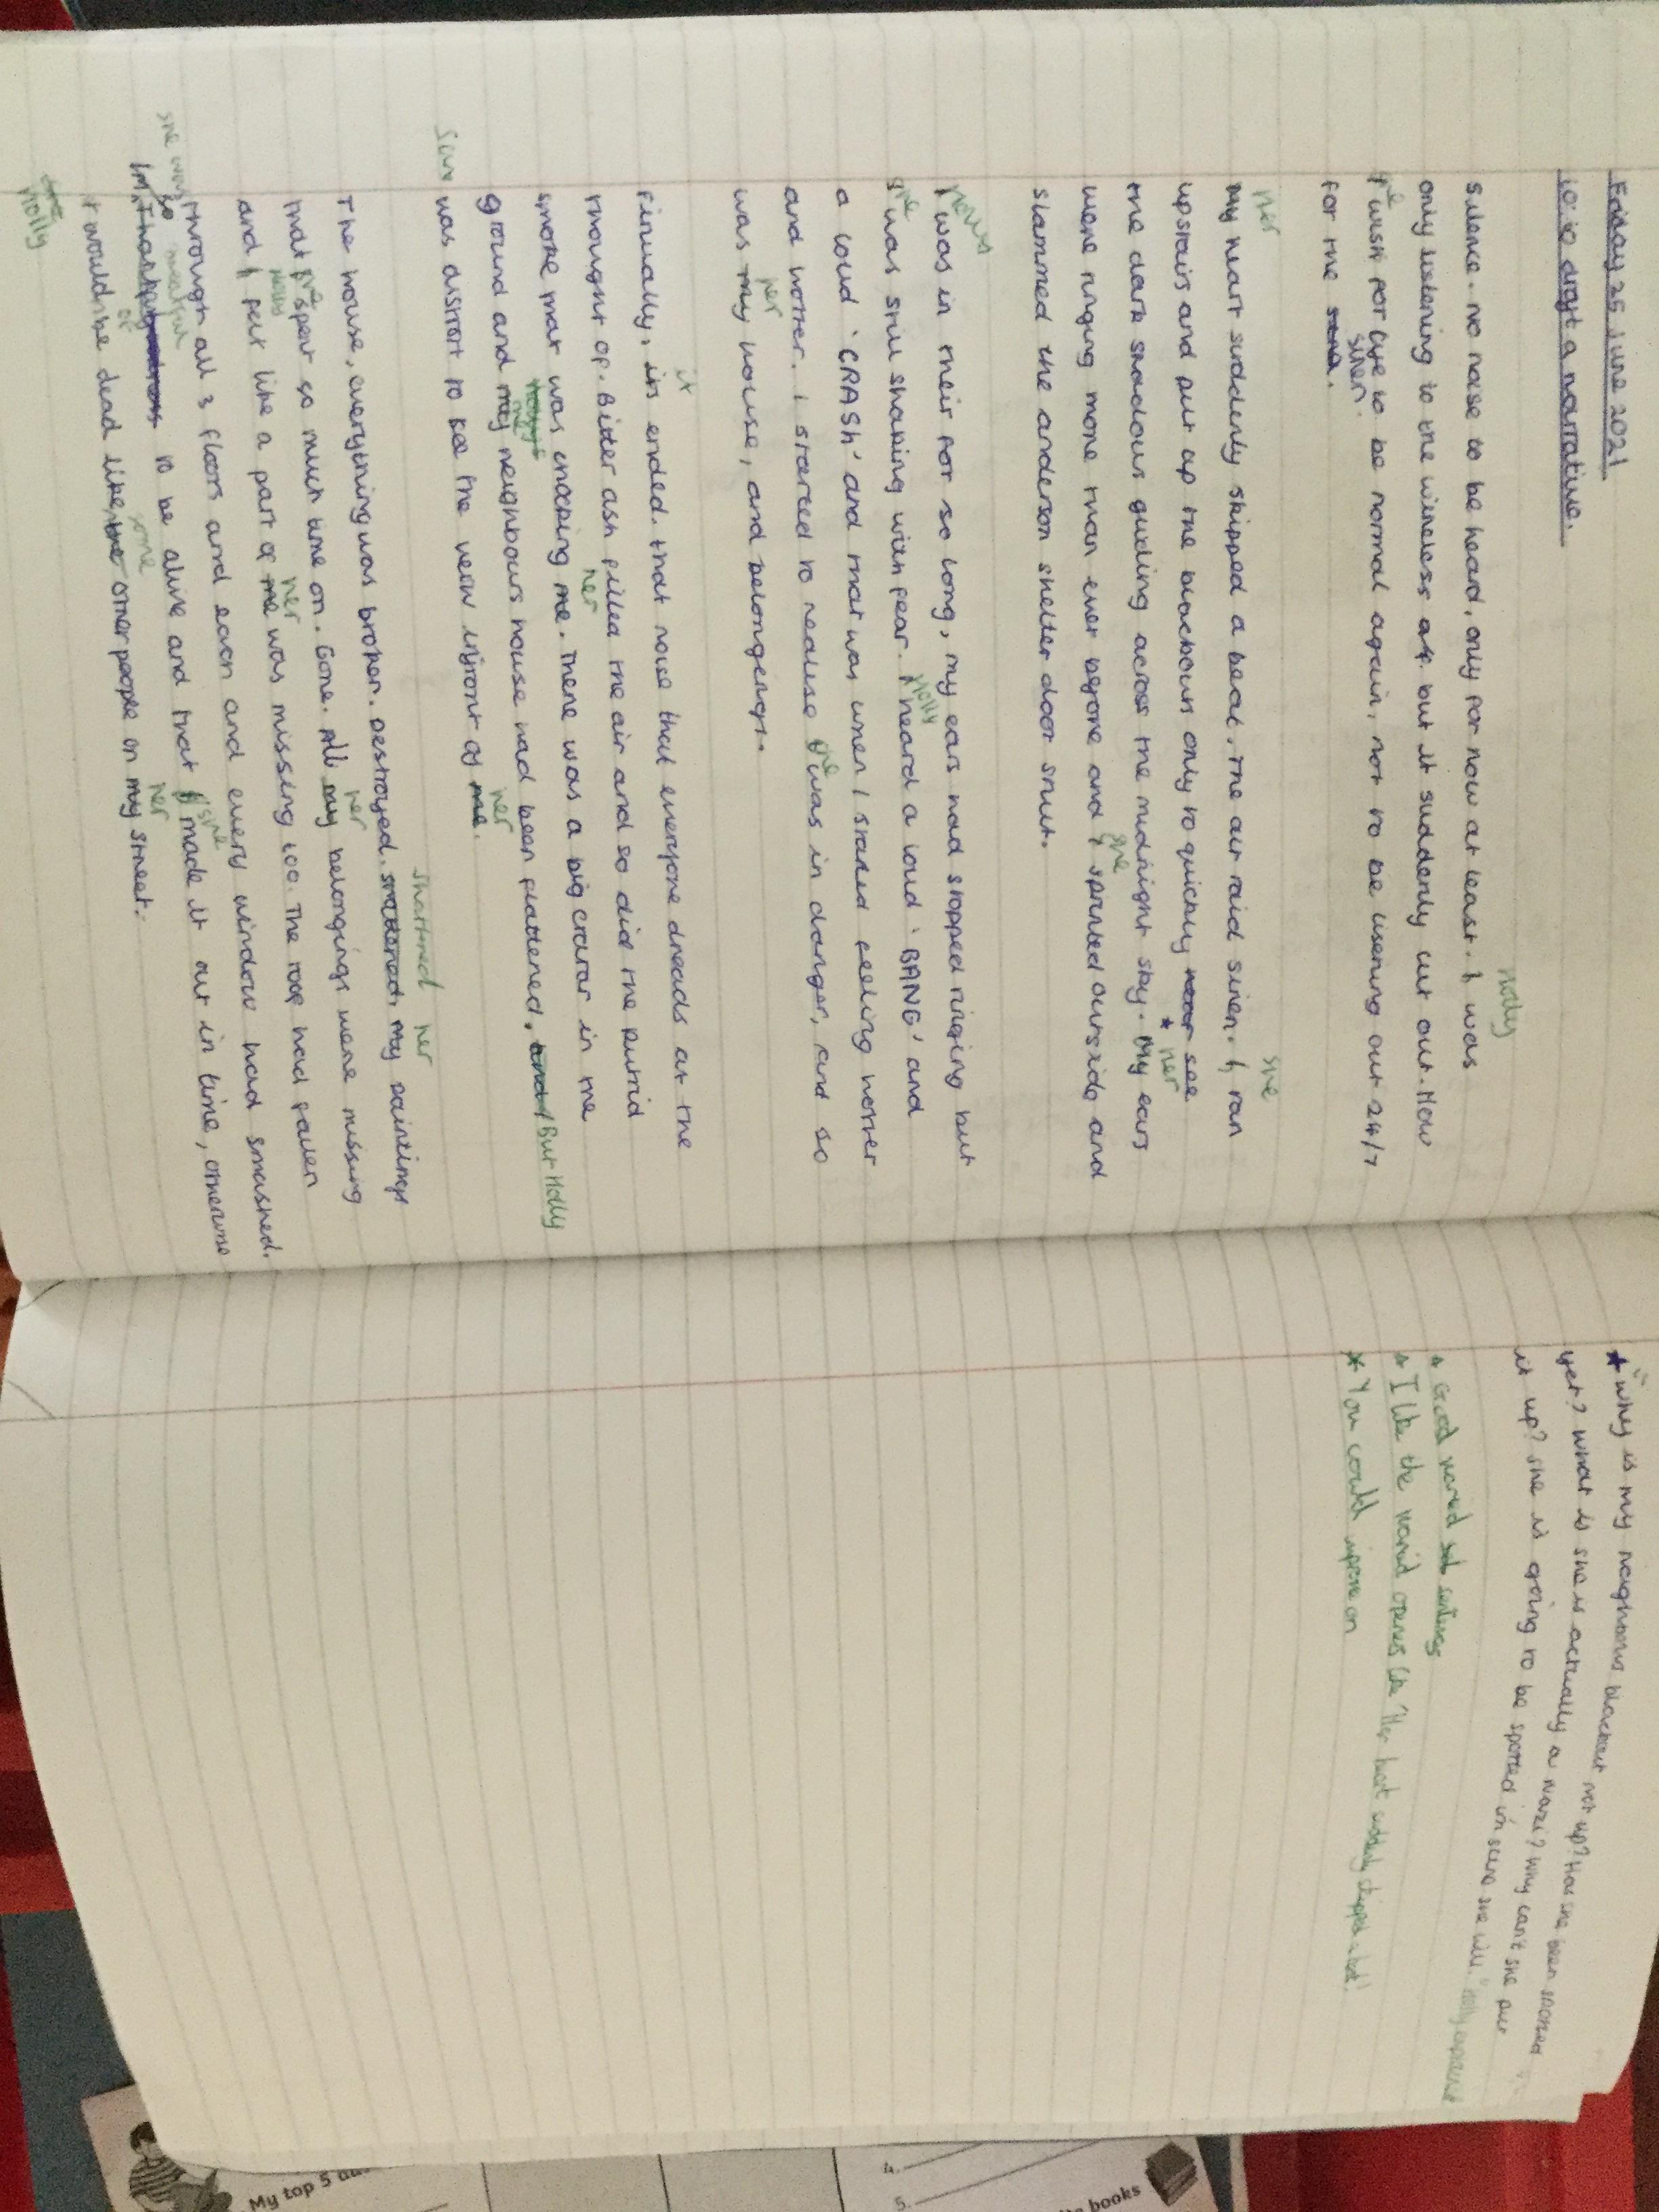 Friday 25 June 2021
LO: to draft a narrative.
Holly
Silence. No noise to be heard, only for now at least. I was
only listening to the wireless but it suddenly cut out. How
I wish for life to be normal again, not to be listening out 24/7
siren.
for the
Her she
My heart suddenly skipped a beat, the air raid siren. I ran
upstairs and put up the blackouts only to quickly see
the dark shadows guiding across the midnight sky. * My ears
her
were ringing more than ever before and I sprinted outside and
she
slammed the anderson shelter door shut.
Hours
I was in their for so long, my ears had stopped ringing but
she Holly
I was still shaking with fear. I heard a loud 'BANG' and
a loud 'CRASH' and that was when I started feeling hotter
and hotter. I started to realise I was in danger, and so
she
was my house, and belongings.
her
it
Finually, its ended. that noise that everyone dreads at the
thought of. Bitter ash filled the air and so did the putrid
her
smoke that was choking me. There was a big crater in the
ground and my neighbours house had been flattened. and I But Holly
her
Saw was distort to see the view infront of me.
shattered her
The house, everything was broken. Destroyed. shattered, My paintings
her
that I spent so much time on. Gone. All my belongings were missing
her
and I felt like a part of me was missing too. The roof had fallen
through all 3 floors and each and every window had smashed.
she was so
I'm to be alive and that I made it out in time, otherwise
she
some her
I would be dead like the other people on my street.
Holly
★ "Why is my neighbours blackout not up? Has she been
yet? What is she is actually a nazi? Why can't she put
it up? She is going to be spotted in scene she will."
* Good sentences
* I like the openers like 'Her heart suddenly skipped a beat'
* You could improve on
My top 5
4.
5.
books